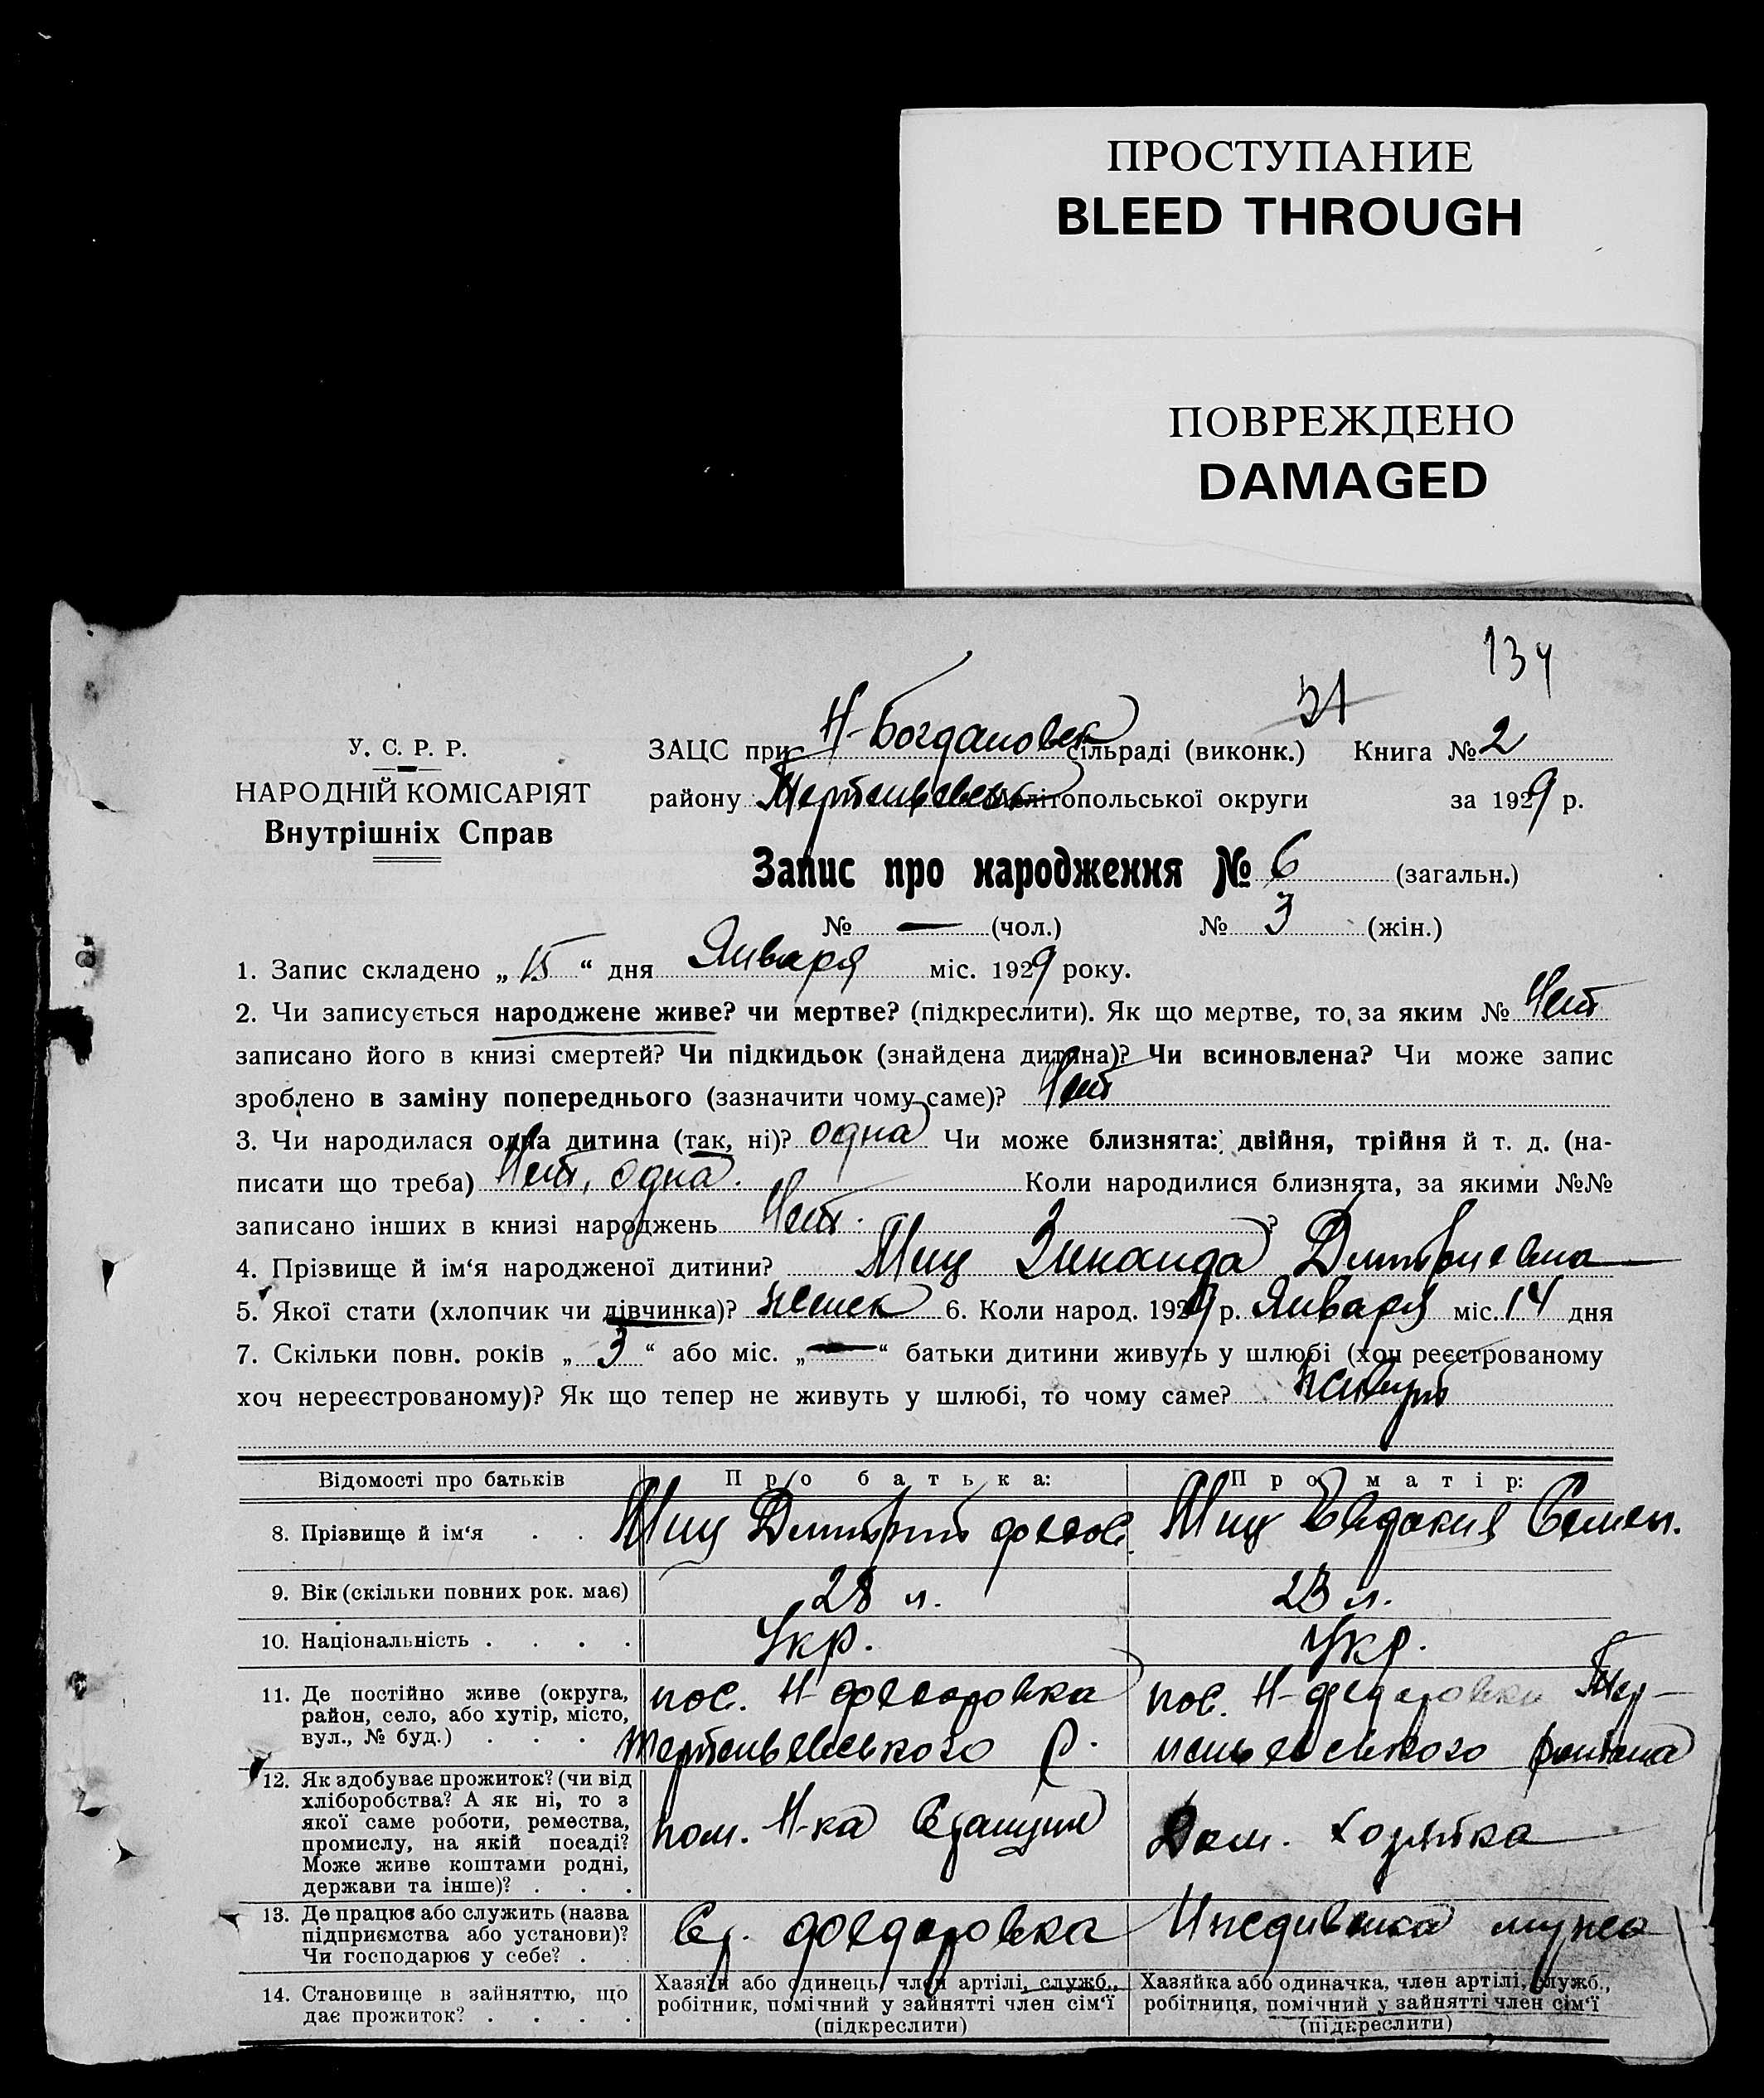 ПРОСТУПАНИЕ
BLEED THROUGH
ПОВРЕЖДЕНО
DAMAGED
134
31
У. С. Р. Р.
НАРОДНІЙ КОМІСАРІЯТ
Внутрішніх Справ
ЗАЦС при Н-Богдановск сільраді (виконк.) Книга № 2
району Терпеньевск Мелітопольської округи за 1929 р.
Запис про народження № 6 (загальн.)
№ — (чол.) № 3 (жін.)
1. Запис складено „ 15 “ дня Января міс. 1929 року.
2. Чи записується народжене живе? чи мертве? (підкреслити). Як що мертве, то за яким № Нет
записано його в книзі смертей? Чи підкидьок (знайдена дитина)? Чи всиновлена? Чи може запис
зроблено в заміну попереднього (зазначити чому саме)? Нет
3. Чи народилася одна дитина (так, ні)? одна Чи може близнята: двійня, трійня й т. д. (на-
писати що треба) Нет, одна. Коли народилися близнята, за якими №№
записано інших в книзі народжень Нет. ?
4. Прізвище й ім‘я народженої дитини? Миц Зинаида Дмитриевна
5. Якої стати (хлопчик чи дівчинка)? женск 6. Коли народ. 1929 р. Января міс. 14 дня
7. Скільки повн. років „ 3 “ або міс. „ — “ батьки дитини живуть у шлюбі (хоч реєстрованому
хоч нереєстрованому)? Як що тепер не живуть у шлюбі, то чому саме? живут
Відомості про батьків Про батька: Про матір:
8. Прізвище й ім‘я . . Миц Дмитрий Федов. Миц Евдокия Семен.
9. Вік (скільки повних рок. має) 28 л. 23 л.
10. Національність . . . . Укр. Укр.
11. Де постійно живе (округа,
район, село, або хутір, місто,
вул., № буд.) . . .
пос. Н-Федоровка
Терпеньевського р.
пос. Н-Федоровка Тер-
пеньевського района
12. Як здобуває прожиток? (чи від
хліборобства? А як ні, то з
якої саме роботи, ремества,
промислу, на якій посаді?
Може живе коштами родні,
держави та інше)? . . .
пом. Н-ка Станции
Дом. хозяйка
13. Де працює або служить (назва
підприємства або установи)?
Чи господарює у себе? .
Федоровка
Иждивенка мужа
14. Становище в зайняттю, що
дає прожиток? . . . .
Хазяїн або одинець, член артілі, служб.,
робітник, помічний у зайнятті член сім‘ї
(підкреслити)
Хазяйка або одиначка, член артілі, служб.,
робітниця, помічний у зайнятті член сім‘ї
(підкреслити)